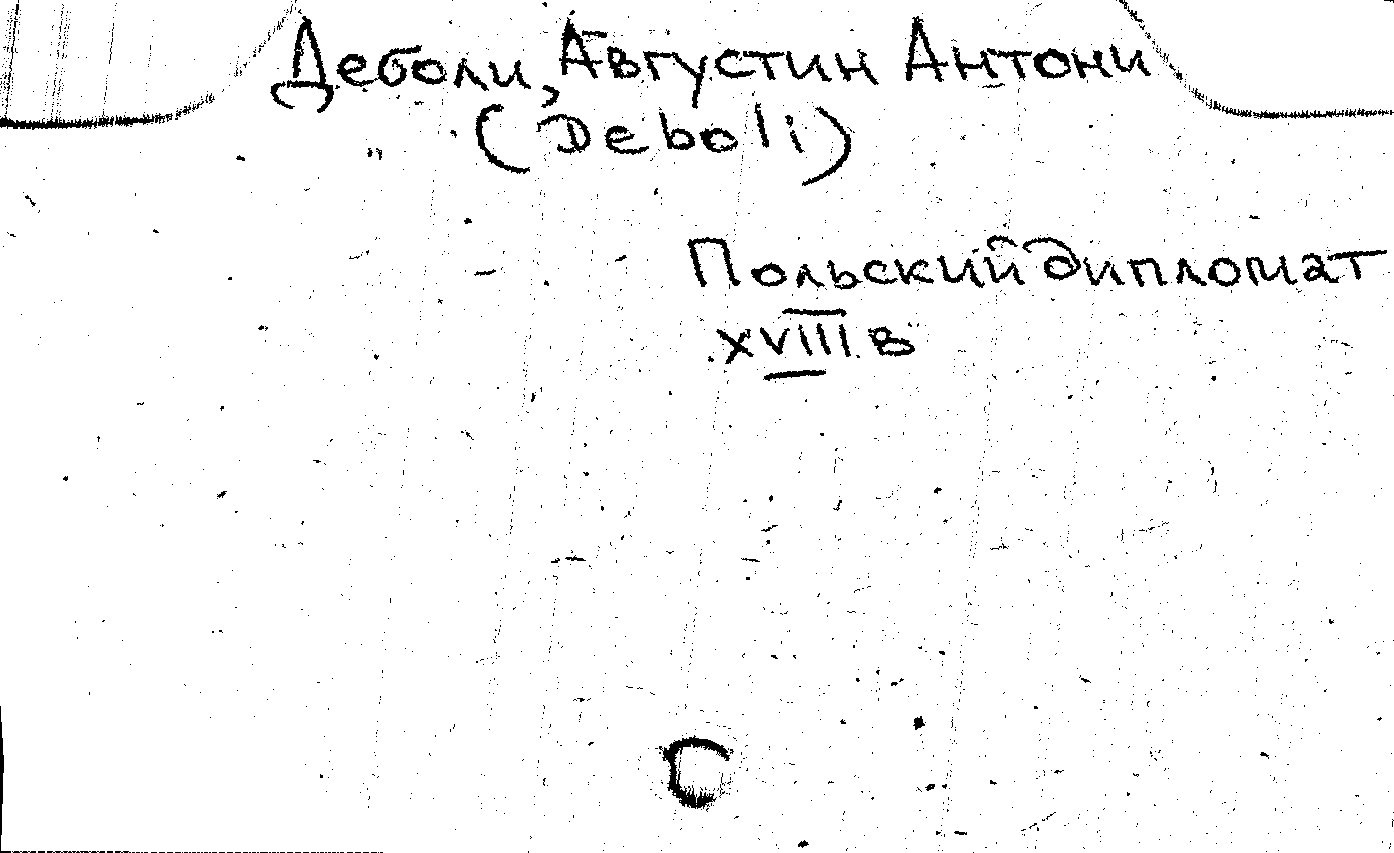 Деболи, Августин Антони
(Deboli)
Польский дипломат
XVIII в